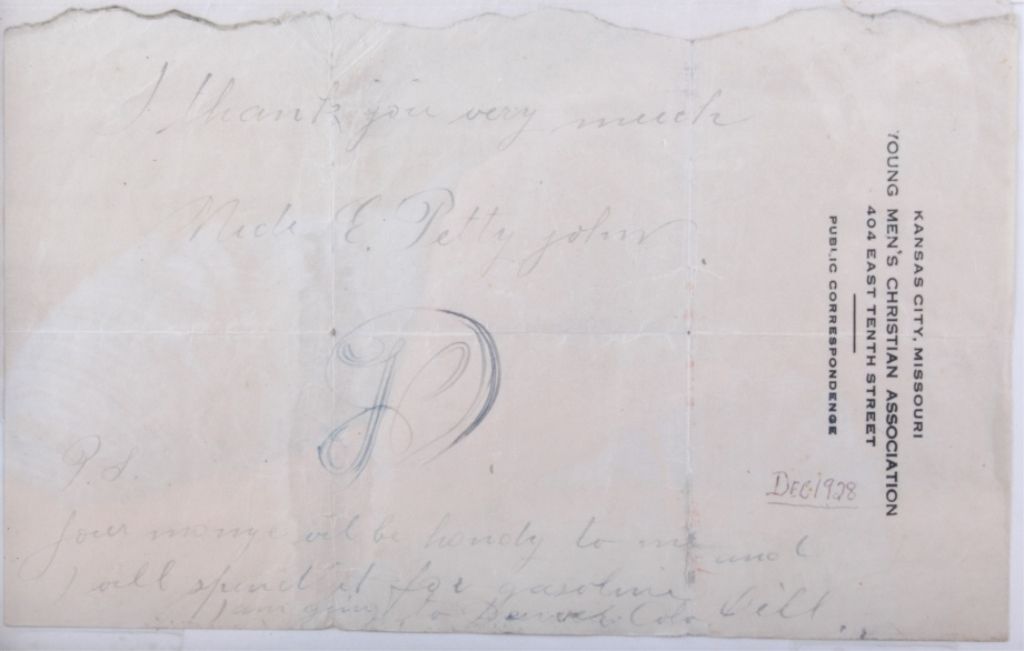 I thank you very much
E. Petty john
D
P.S.
your monye will be handy to me and
I will spend it for gasoline
I am going to Denver Colo
KANSAS CITY, MISSOURI
YOUNG MEN'S CHRISTIAN ASSOCIATION
404 EAST TENTH STREET
PUBLIC CORRESPONDENCE
DEC. 1928